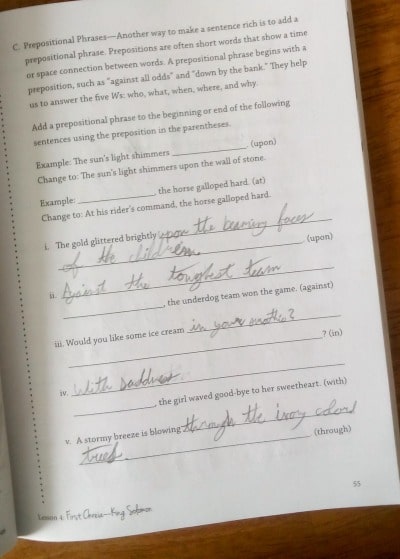 C. Prepositional Phrases—Another way to make a sentence rich is to add a
prepositional phrase. Prepositions are often short words that show a time
or space connection between words. A prepositional phrase begins with a
preposition, such as "against all odds" and "down by the bank." They help
us to answer the five Ws: who, what, when, where, and why.
Add a prepositional phrase to the beginning or end of the following
sentences using the preposition in the parentheses.
Example: The sun's light shimmers ____________. (upon)
Change to: The sun's light shimmers upon the wall of stone.
Example: ____________, the horse galloped hard. (at)
Change to: At his rider's command, the horse galloped hard.
i. The gold glittered brightly upon the beaming faces
of the children. (upon)
ii. Against the toughest team
____________, the underdog team won the game. (against)
iii. Would you like some ice cream in your mouth?
____________? (in)
iv. With sadness
____________, the girl waved good-bye to her sweetheart. (with)
v. A stormy breeze is blowing through the ivory colored
trees. (through)
55
Lesson 4: First Chreia—King Solomon